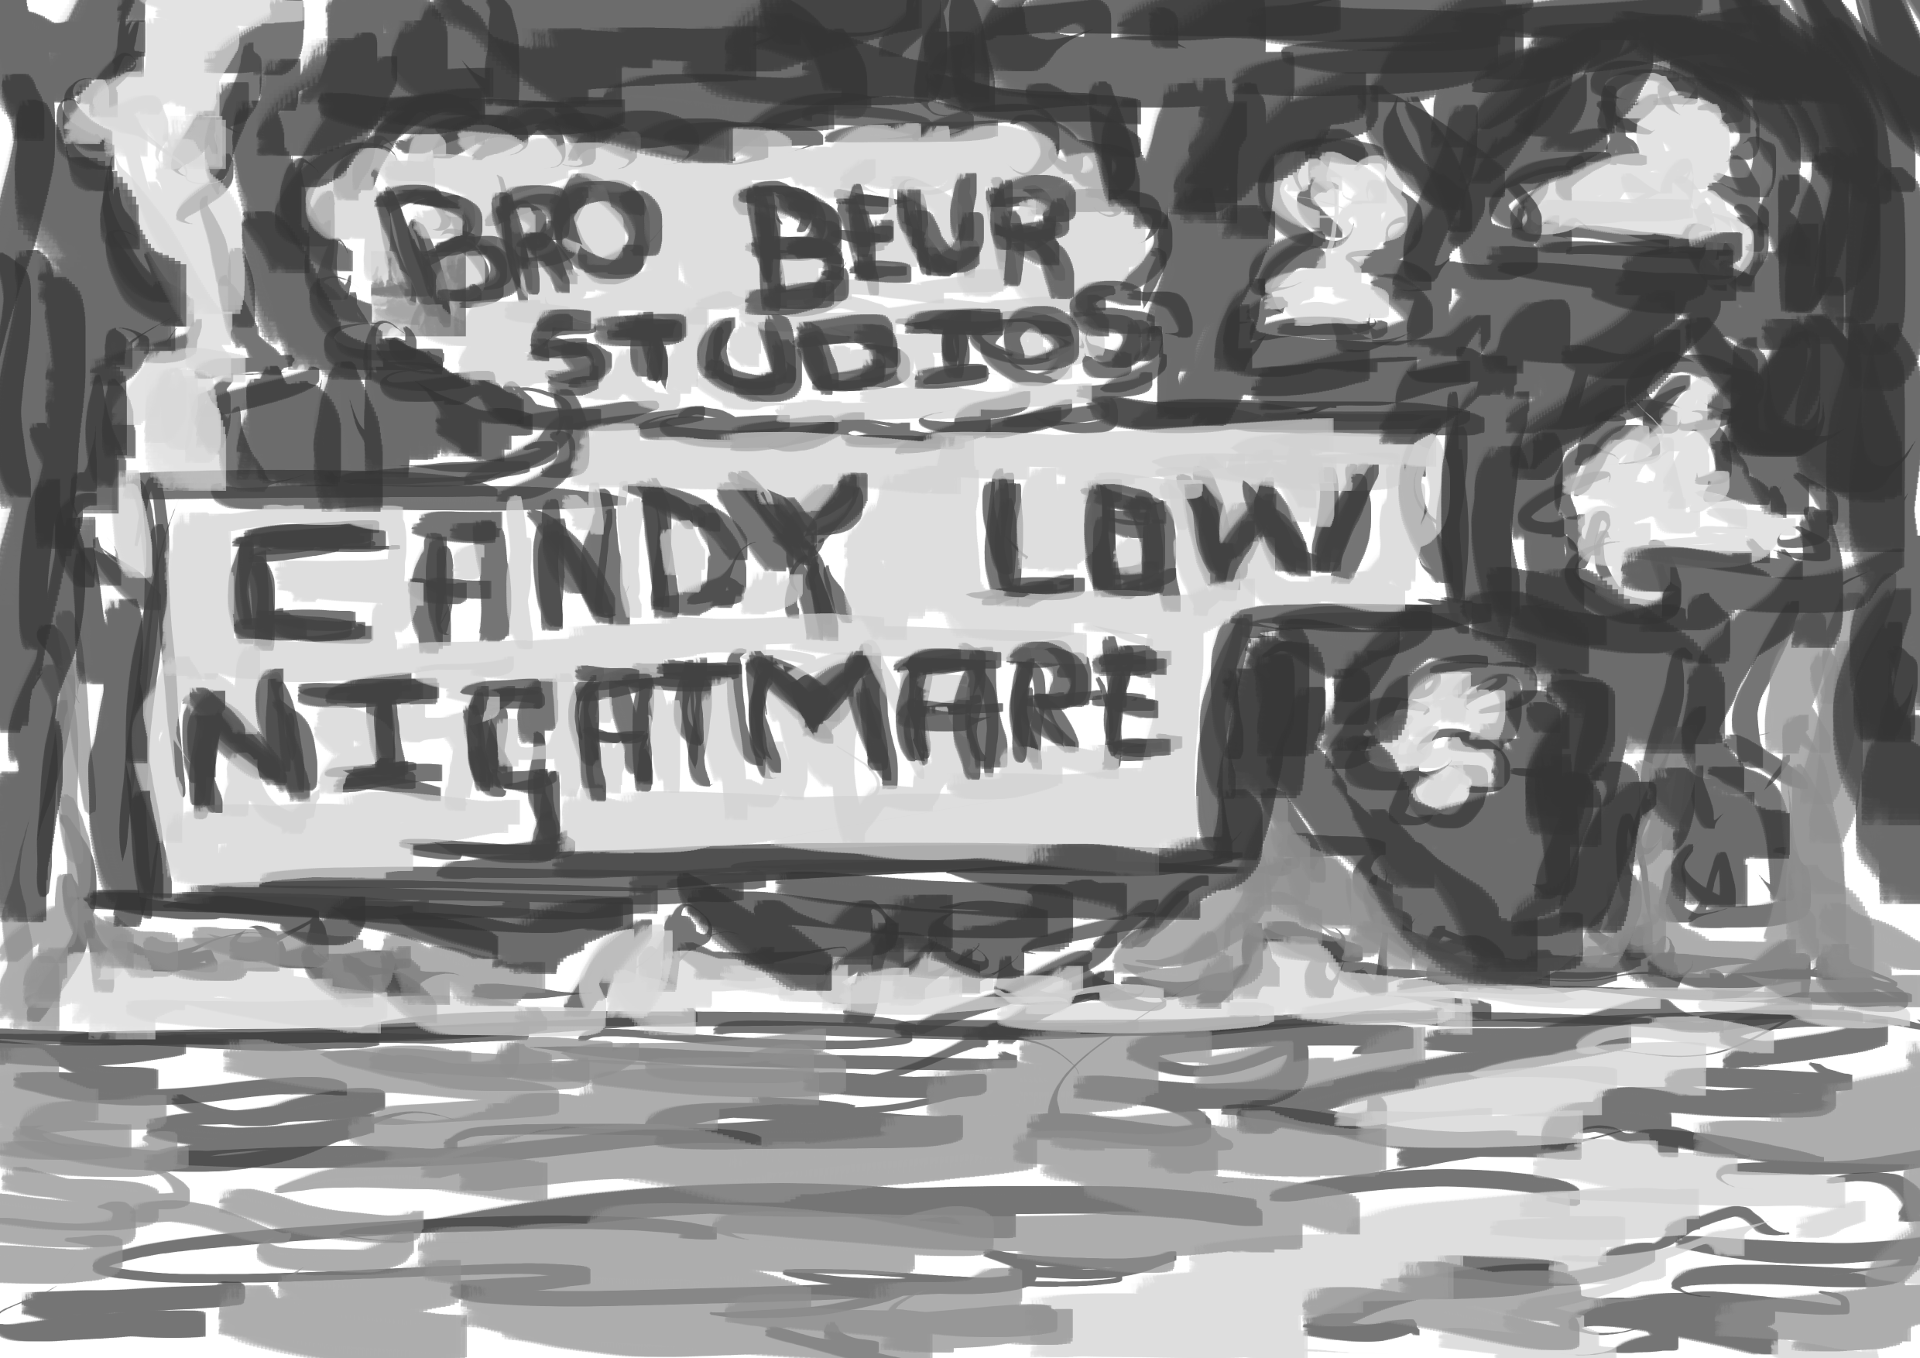 BRO BEUR
STUDIOS
CANDY LOW
NIGATMARE